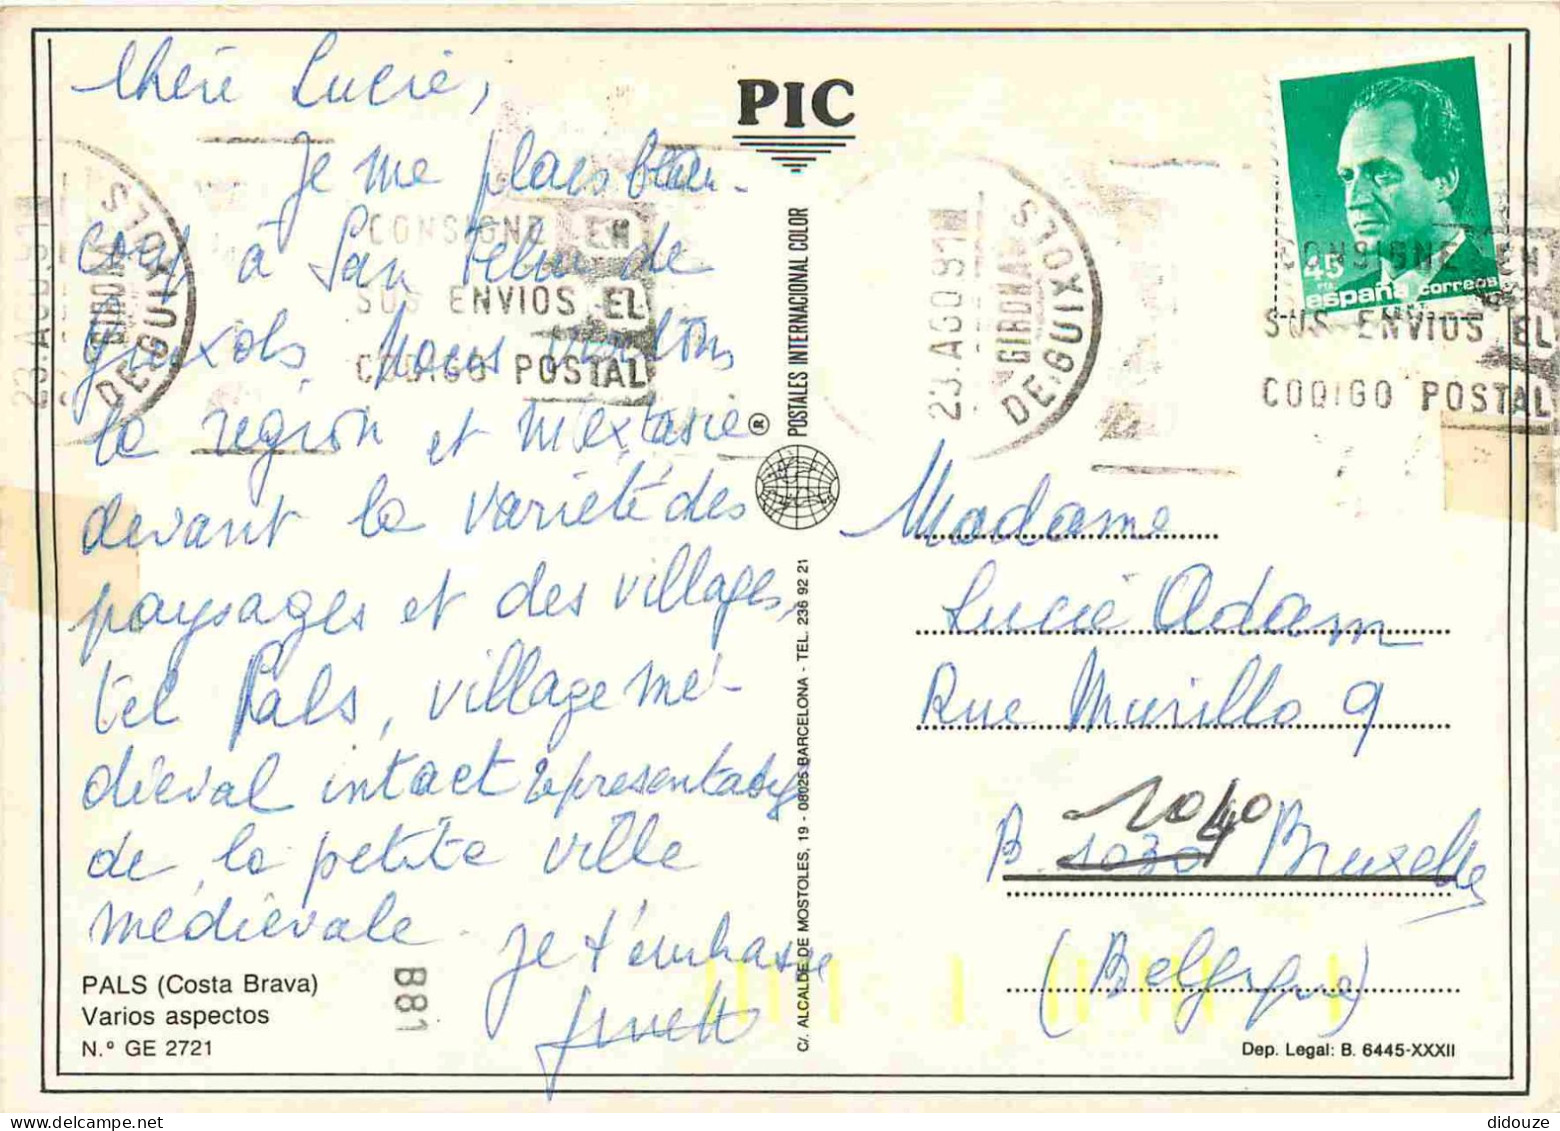 Chère Lucie,
Je me plais beau-
coup à San Feliu de
Guixols. Nous visitons
la région et m'extasie
devant la variété des
paysages et des villages,
tel Pals, village mé-
diéval intact représentatif
de la petite ville
médiévale. Je t'embrasse
PALS (Costa Brava)
Varios aspectos
N.º GE 2721
B81
PIC
®
POSTALES INTERNACIONAL COLOR
C/. ALCALDE DE MOSTOLES, 19 - 08025 BARCELONA - TEL. 236 92 21
23.AGO 91
GIRONA
GUIXOLS
DE
CONSIGNE EN
SUS ENVIOS EL
CODIGO POSTAL
23.AGO 91
GIRONA
GUIXOLS
DE
45
PTA
españa correos
CONSIGNE EN
SUS ENVIOS EL
CODIGO POSTAL
Madame
Lucie Adam
Rue Murillo 9
1040
B. 1030 Bruxelles
(Belgique)
Dep. Legal: B. 6445-XXXII
didouze